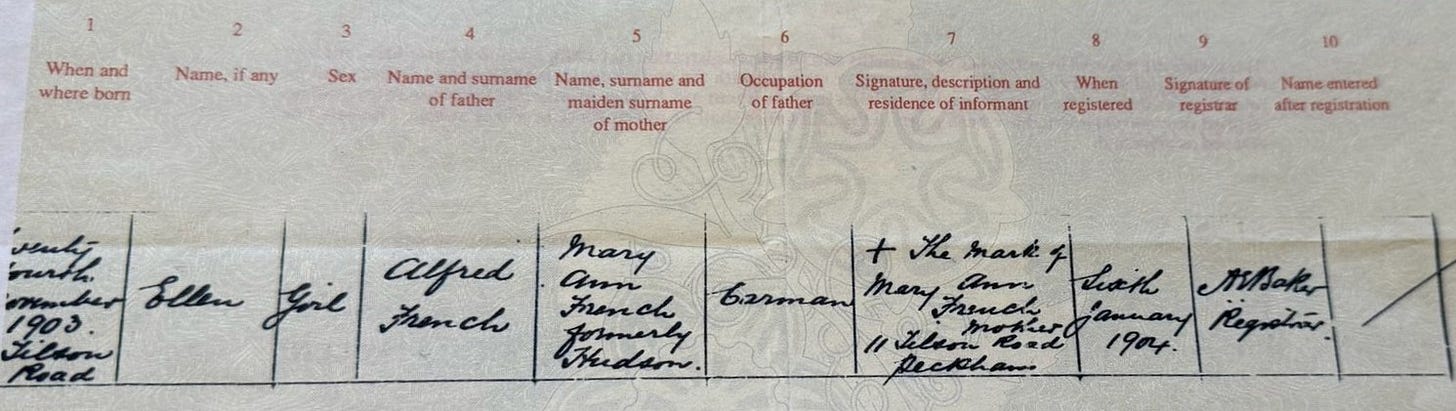 1
When and
where born
2
Name, if any
3
Sex
4
Name and surname
of father
5
Name, surname and
maiden surname
of mother
6
Occupation
of father
7
Signature, description and
residence of informant
8
When
registered
9
Signature of
registrar
10
Name entered
after registration
wenty
ourth
ovember
1903.
Tilson
Road
Ellen
Girl
Alfred
French
Mary
Ann
French
formerly
Hudson.
Carman
+ The mark of
Mary Ann
French
mother
11 Tilson Road
Peckham
Sixth
January
1904.
Baker
Registrar.